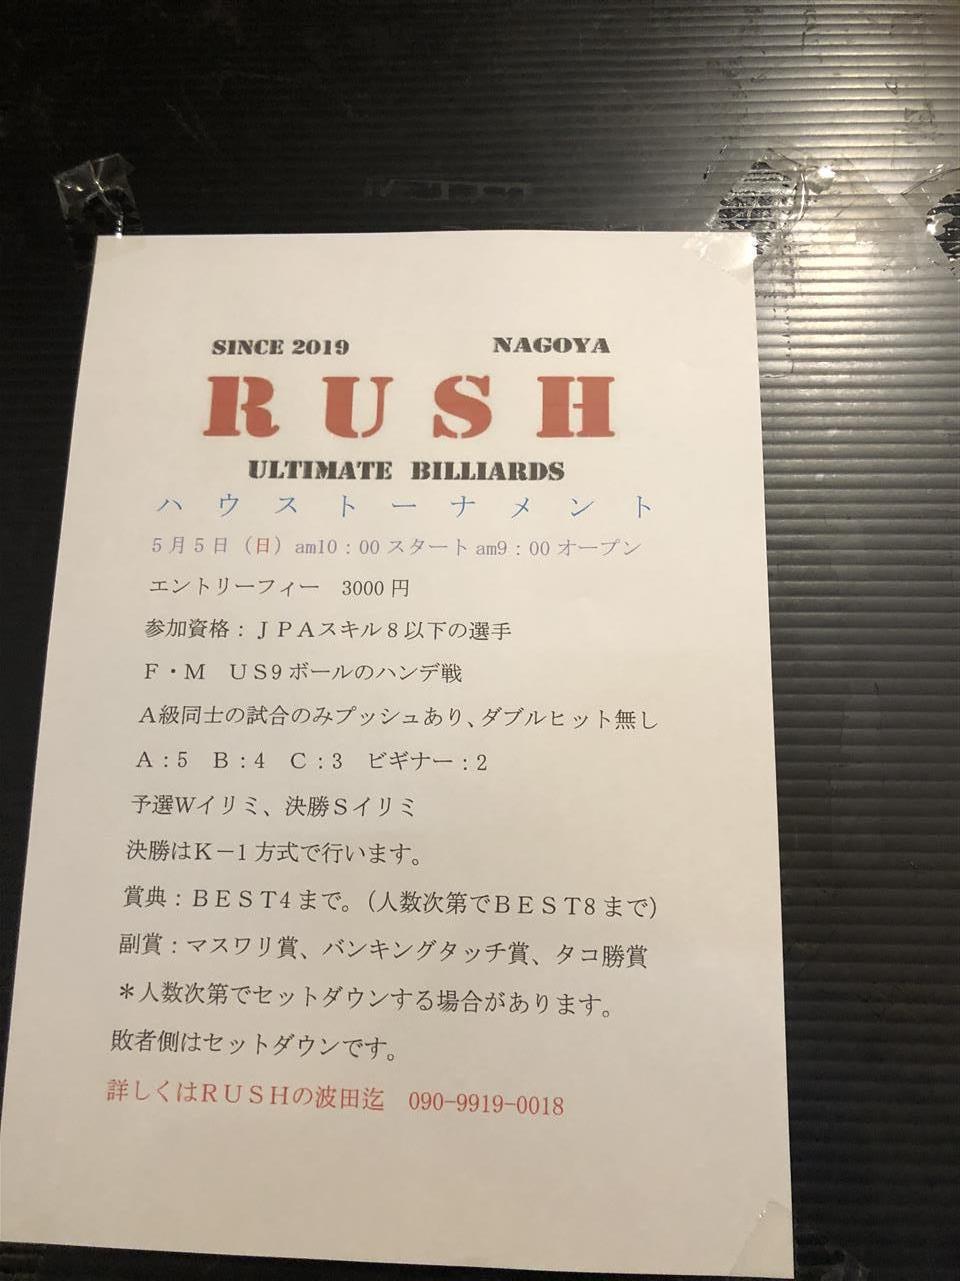 SINCE 2019 NAGOYA
RUSH
ULTIMATE BILLIARDS
ハウストーナメント
5月5日（日）am10：00スタートam9：00オープン
エントリーフィー　3000円
参加資格：ＪＰＡスキル８以下の選手
Ｆ・Ｍ　ＵＳ9ボールのハンデ戦
Ａ級同士の試合のみプッシュあり、ダブルヒット無し
Ａ：5　Ｂ：4　Ｃ：3　ビギナー：2
予選Ｗイリミ、決勝Ｓイリミ
決勝はＫ－1方式で行います。
賞典：ＢＥＳＴ4まで。（人数次第でＢＥＳＴ8まで）
副賞：マスワリ賞、バンキングタッチ賞、タコ勝賞
＊人数次第でセットダウンする場合があります。
敗者側はセットダウンです。
詳しくはＲＵＳＨの波田迄　090-9919-0018